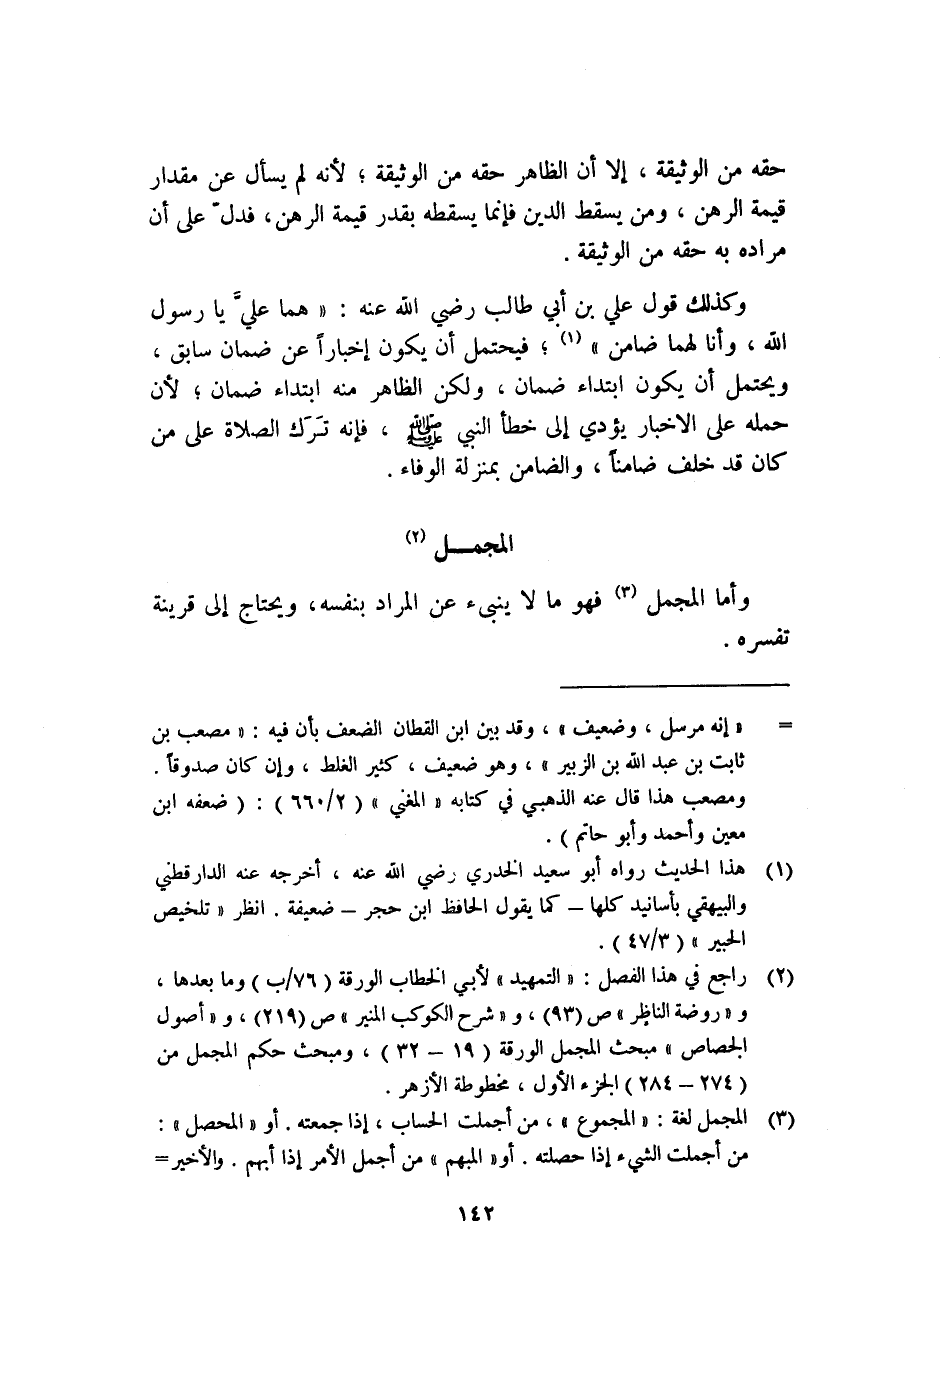 حقه من الوثيقة ، إلا أن الظاهر حقه من الوثيقة ؛ لأنه لم يسأل عن مقدار
قيمة الرهن ، ومن يسقط الدين فإنما يسقطه بقدر قيمة الرهن ، فدلّ على أن
مراده به حقه من الوثيقة .
وكذلك قول علي بن أبي طالب رضي الله عنه : « هما عليَّ يا رسول
الله ، وأنا لهما ضامن » (١) ؛ فيحتمل أن يكون إخباراً عن ضمان سابق ،
ويحتمل أن يكون ابتداء ضمان ، ولكن الظاهر منه ابتداء ضمان ؛ لأن
حمله على الاخبار يؤدي إلى خطأ النبي ﷺ ، فإنه تَرَك الصلاة على من
كان قد خلف ضامناً ، والضامن بمنزلة الوفاء .
المجمـــل (٢)
وأما المجمل (٣) فهو ما لا ينبىء عن المراد بنفسه ، ويحتاج إلى قرينة
تفسره .
= « إنه مرسل ، وضعيف » ، وقد بين ابن القطان الضعف بأن فيه : « مصعب بن
ثابت بن عبد الله بن الزبير » ، وهو ضعيف ، كثير الغلط ، وإن كان صدوقاً .
ومصعب هذا قال عنه الذهبي في كتابه « المغني » ( ٦٦٠/٢ ) : ( ضعفه ابن
معين وأحمد وأبو حاتم ) .
(١) هذا الحديث رواه أبو سعيد الخدري رضي الله عنه ، أخرجه عنه الدارقطني
والبيهقي بأسانيد كلها – كما يقول الحافظ ابن حجر – ضعيفة . انظر « تلخيص
الحبير » ( ٤٧/٣ ) .
(٢) راجع في هذا الفصل : « التمهيد » لأبي الخطاب الورقة ( ٧٦/ب ) وما بعدها ،
و « روضة الناظر » ص (٩٣) ، و « شرح الكوكب المنير » ص (٢١٩) ، و « أصول
الجصاص » مبحث المجمل الورقة ( ١٩ – ٣٢ ) ، ومبحث حكم المجمل من
( ٢٧٤ – ٢٨٤ ) الجزء الأول ، مخطوطة الأزهر .
(٣) المجمل لغة : « المجموع » ، من أجملت الحساب ، إذا جمعته . أو « المحصل » :
من أجملت الشيء إذا حصلته . أو « المبهم » من أجمل الأمر إذا أبهم . والأخير =
١٤٢